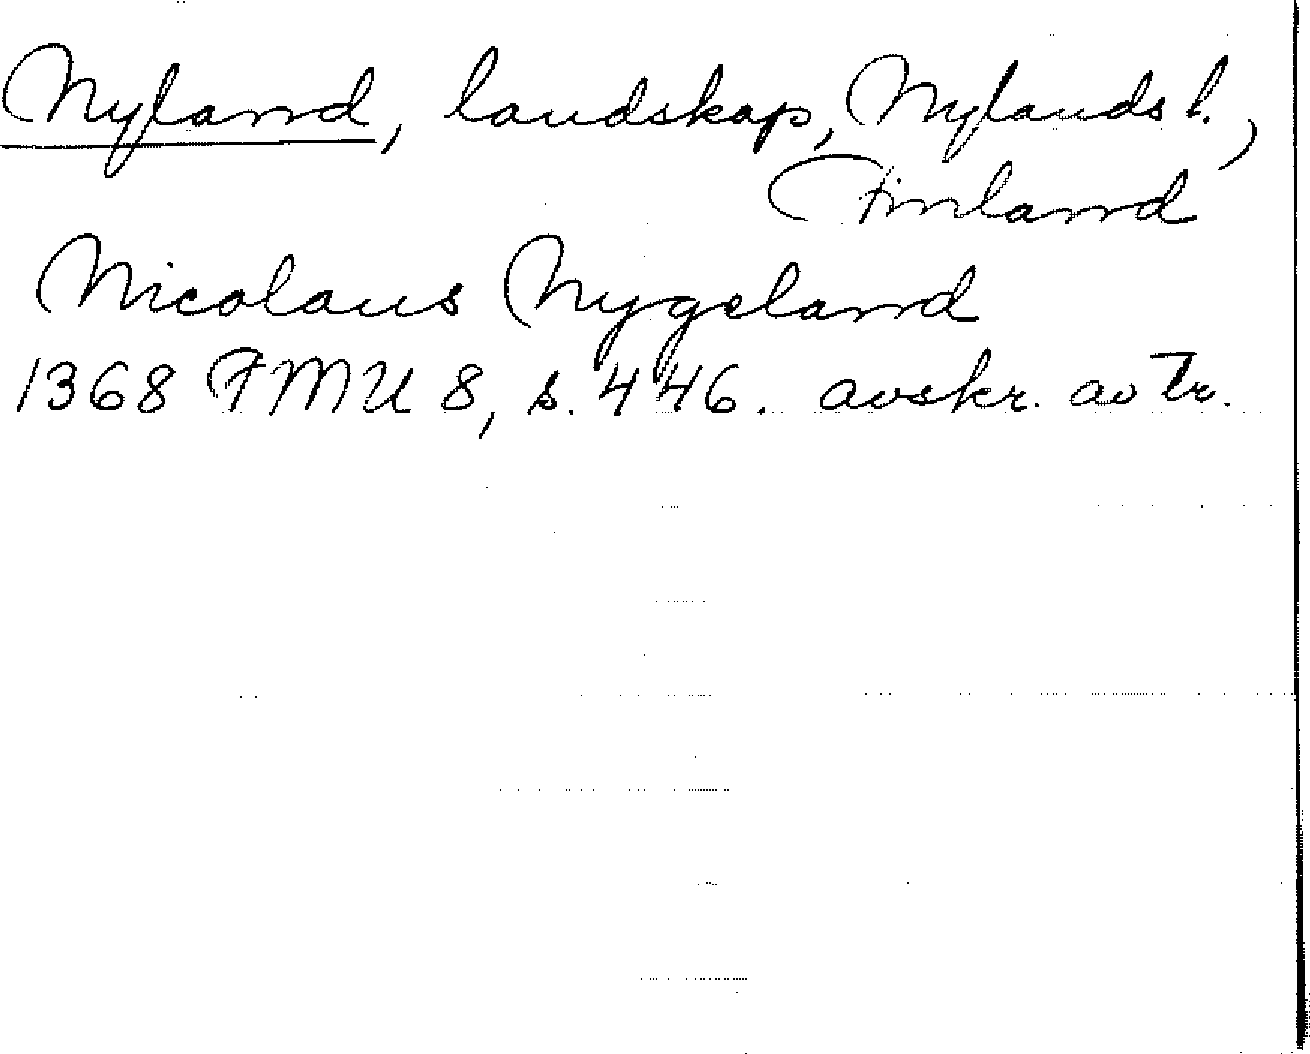 Nyland, landskap, Nylands l.,
Finland
Nicolaus Nygeland
1368 FMU 8, s. 446. avskr. av tr.